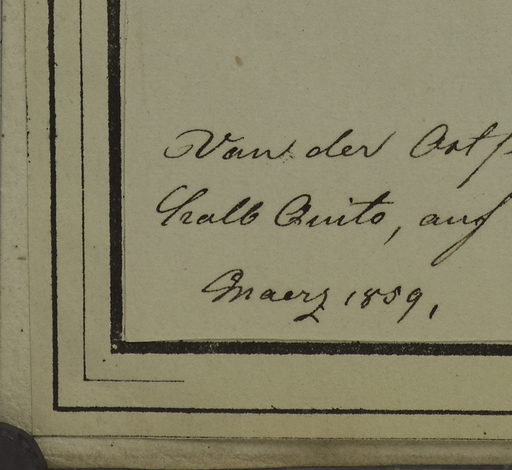 Van der Ost
halb Quito, auf
Maerz 1859,